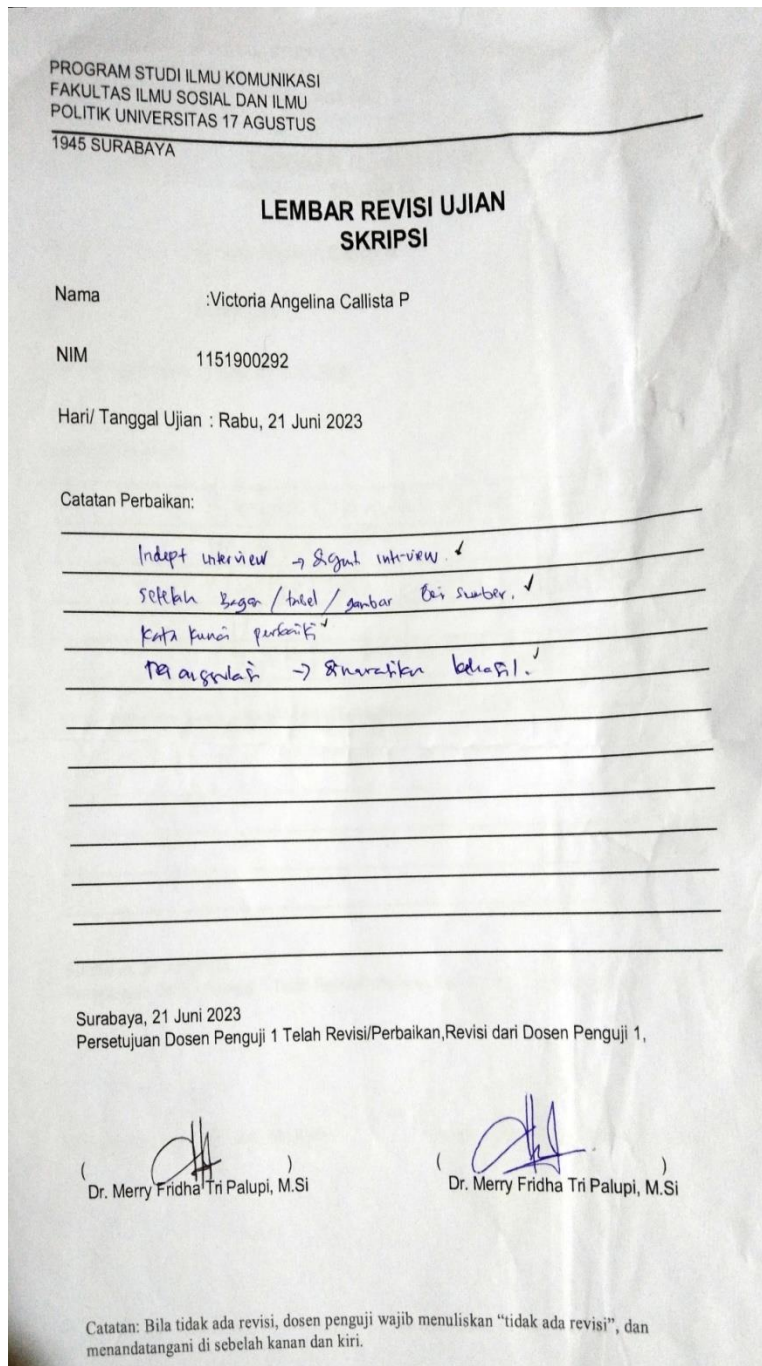 PROGRAM STUDI ILMU KOMUNIKASI
FAKULTAS ILMU SOSIAL DAN ILMU
POLITIK UNIVERSITAS 17 AGUSTUS
1945 SURABAYA
LEMBAR REVISI UJIAN
SKRIPSI
Nama :Victoria Angelina Callista P
NIM 1151900292
Hari/ Tanggal Ujian : Rabu, 21 Juni 2023
Catatan Perbaikan:
Indept interview →
setelah Bagan / tabel / gambar beri sumber. ✓
Kata kunci perbaiki ✓
→ ✓
Surabaya, 21 Juni 2023
Persetujuan Dosen Penguji 1 Telah Revisi/Perbaikan,Revisi dari Dosen Penguji 1,
( ) ( )
Dr. Merry Fridha Tri Palupi, M.Si Dr. Merry Fridha Tri Palupi, M.Si
Catatan: Bila tidak ada revisi, dosen penguji wajib menuliskan “tidak ada revisi”, dan
menandatangani di sebelah kanan dan kiri.